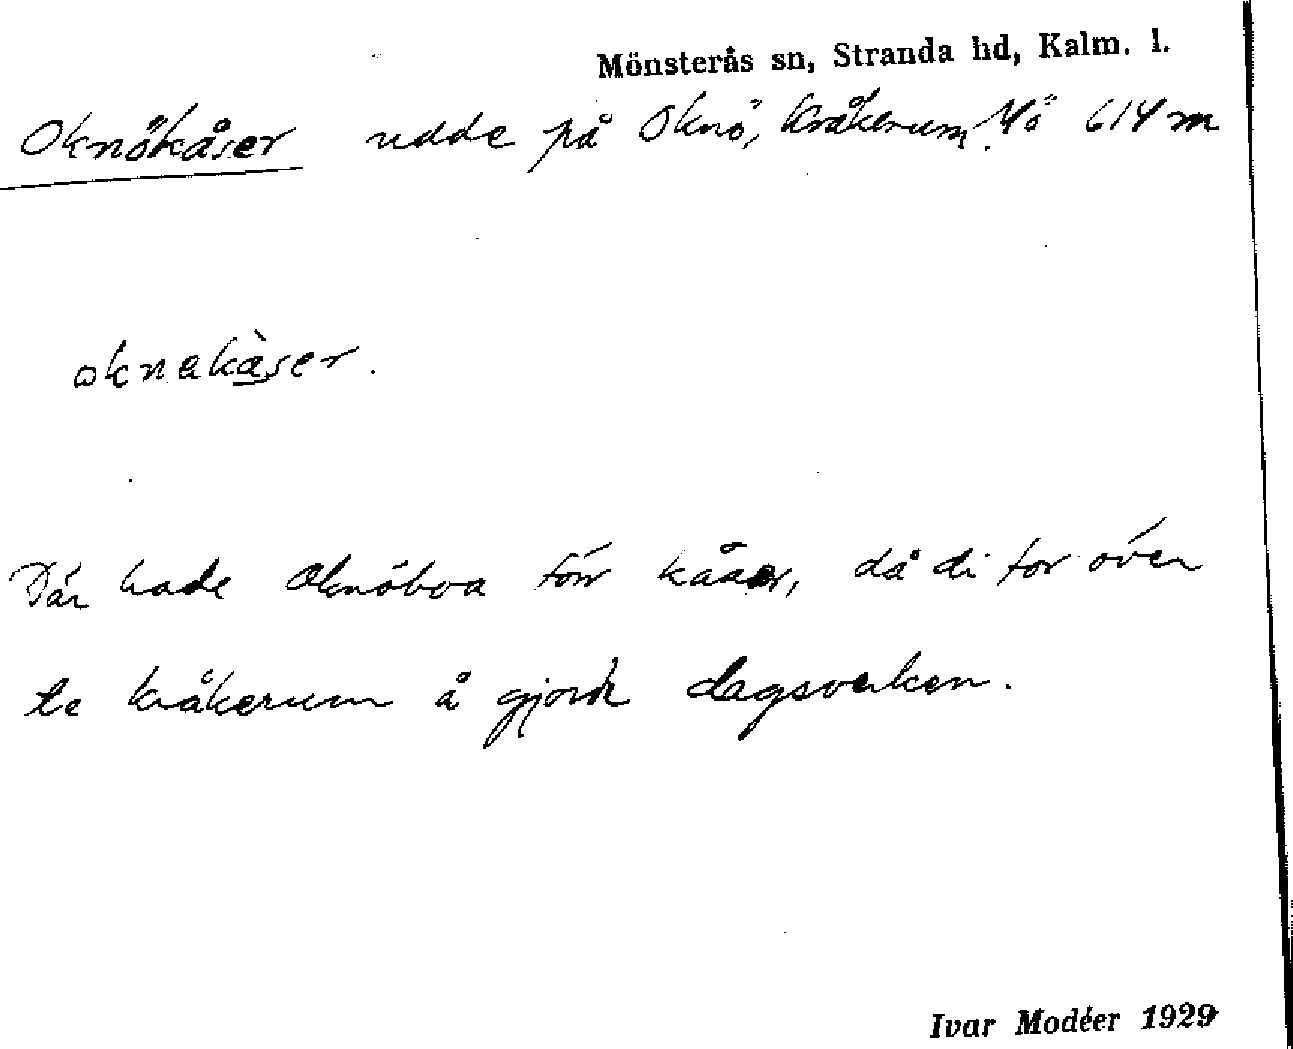 Mönsterås sn, Stranda hd, Kalm. l.
Oknökåser udde på Oknö, Kråkerum. Yö 614 m
oknakàser.
Där hade Oknöboa förr kåser, då di for över
te kråkerum å gjorde dagsverken.
Ivar Modéer 1929